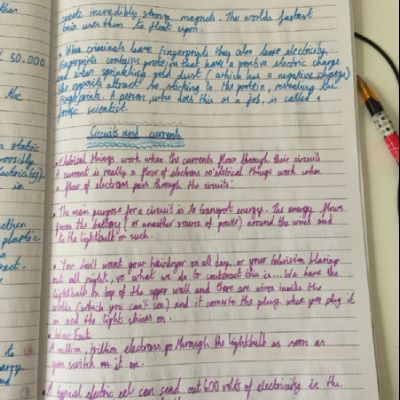 then
create incredibly strong magnets. The worlds fastest
train uses them to float upon.
50,000
• When criminals leave fingerprints they also leave electricity.
Fingerprints contains protein that have a positive electric charge
and when sprinkling gold dust (which has a negative charge)
the opposits attract so sticking to the protein, revealing the
fingerprints. A person who does this as a job, is called a
scientist.
Circuits and currents
• Electrical things work when the currents flow through their circuits
A current is really a flow of electrons so electrical things work when
a flow of electrons pass through the circuits.
• The main purpose for a circuit is to transport energy. The energy flows
from the battery (or another source of power) around the wires and
to the lightbulb or such.
plastic
• You don't want your hairdryer on all day or your television blaring
out all night, so what we do to counteract this is... We have the
lightbulb on top of the upper wall and there are wires inside the
walls (which you can't see) and it comes to the plug where you plug it
in and the light shines on.
• Wow Fact
A million, trillion electrons go through the lightbulb as soon as
you switch on it on.
A typical electric eel can send out 600 volts of electricity in the